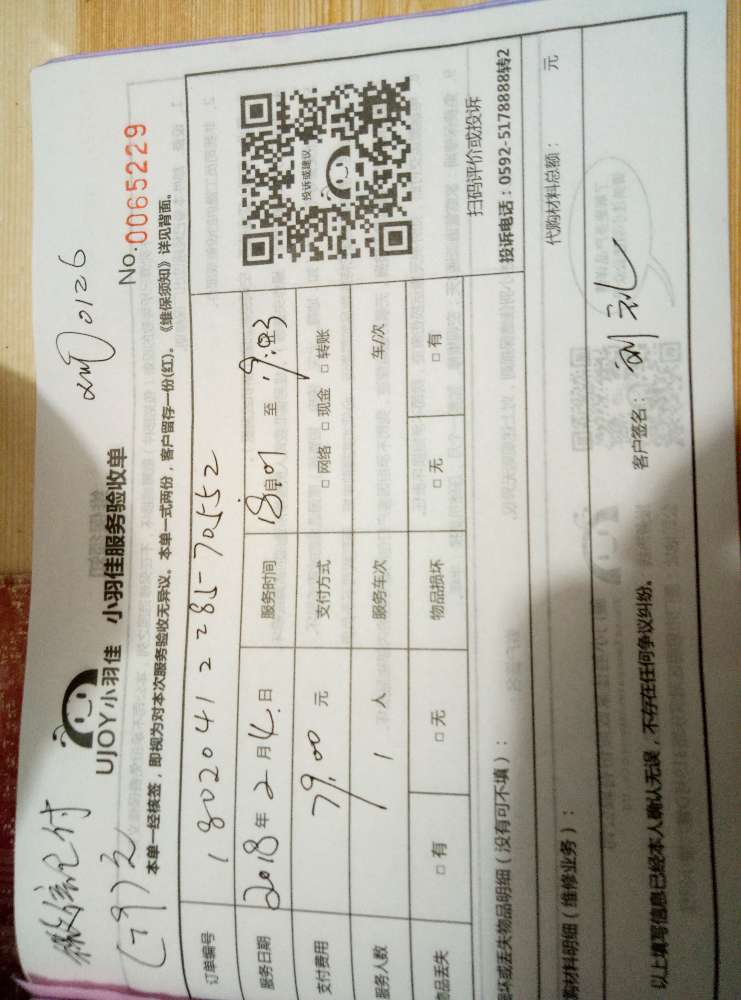 微信支付
(79)元
xm 0126
UJOY小羽佳 小羽佳服务验收单
No. 0065229
本单一经核签，即视为对本次服务验收无异议。本单一式两份，客户留存一份(红)。《维保须知》详见背面。
订单编号 1802041 2285-70552
服务日期 2018年2月4.日 服务时间 18:01 至 19:03
支付费用 79.00 元 支付方式 □ 网络 □ 现金 □ 转账
服务人数 1 人 服务车次 车/次
物品丢失 □ 有 □ 无 物品损坏 □ 无 □ 有
投诉或建议
扫码评价或投诉
投诉电话：0592-5178888转2
坏或丢失物品明细（没有可不填）：
购材料明细（维修业务）： 代购材料总额： 元
以上填写信息已经本人确认无误，不存在任何争议纠纷。 客户签名： 刘礼